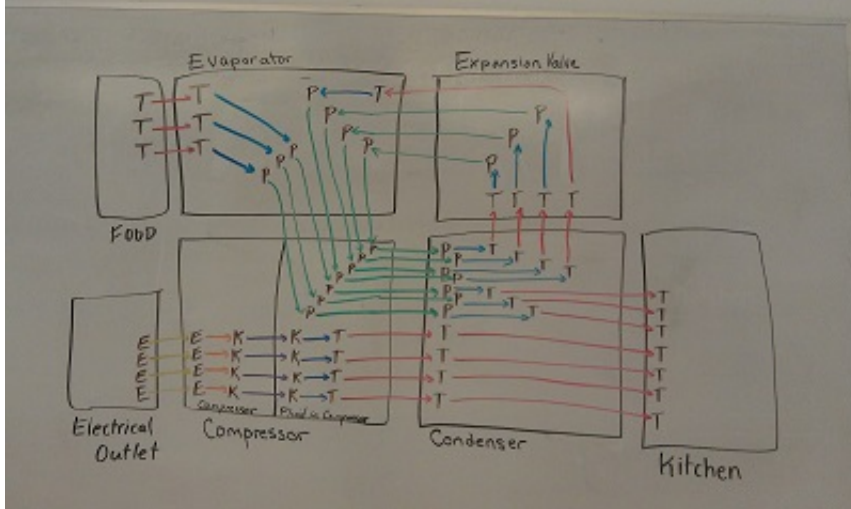 Evaporator
Expansion Valve
T T P T
T T P P P
T T P P P P
P P
T T T T
FOOD
P P T
P P T
P P T
P P T
P P T
P P T
P P T
T
T
T
E E K K T T T
E E K K T T T
E E K K T T T
E E K K T T T
Compressor
Fluid in Compressor
Electrical
Outlet
Compressor
Condenser
Kitchen